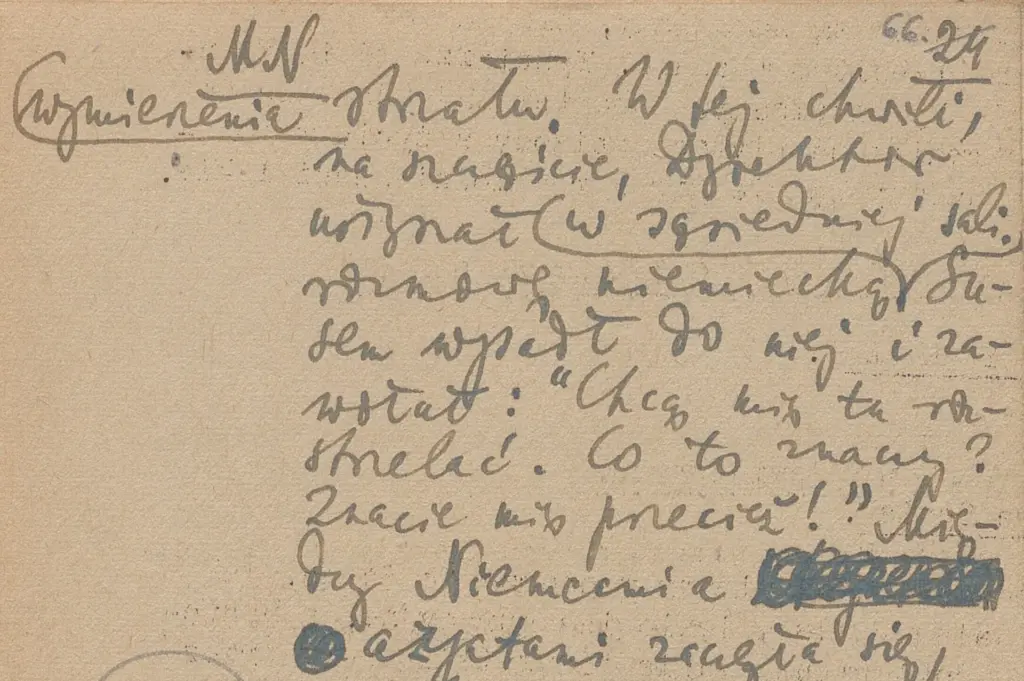 66. 24
MN
wymierzenia strzału. W tej chwili,
na szczęście, Dyrektor
usłyszał w sąsiedniej sali.
rozmowę niemiecką. Su-
sem wypadł do niej i za-
wołał: "Chcą mię tu roz-
strzelać. Co to znaczy?
Znacie mię przecież!" Mię-
dzy Niemcami a
azjatami zaczęła się,